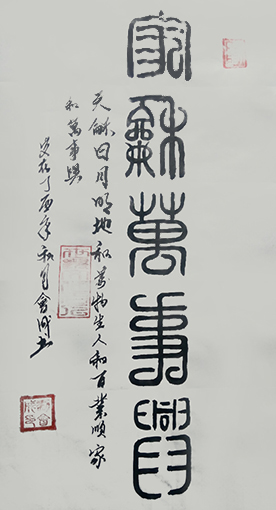 家龢萬事興
天龢日月明地和萬物生人和百業順家
和萬事興
歲在丁酉年秋月